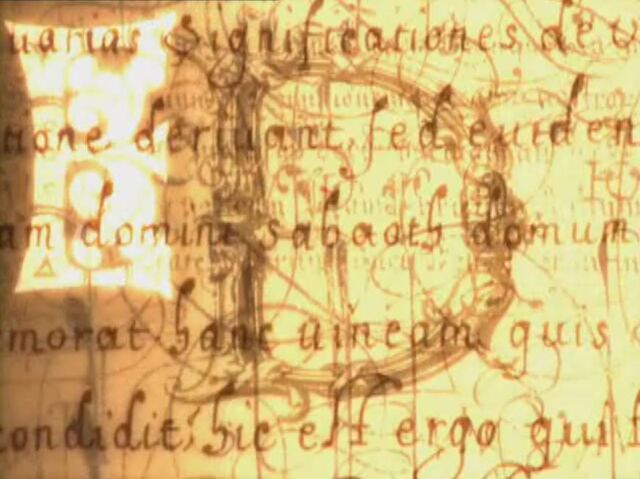 uarias Significationes de
tione deriuant sed euiden
am domini sabaoth domum
morat hanc uineam quis
condidit, hic est ergo qui